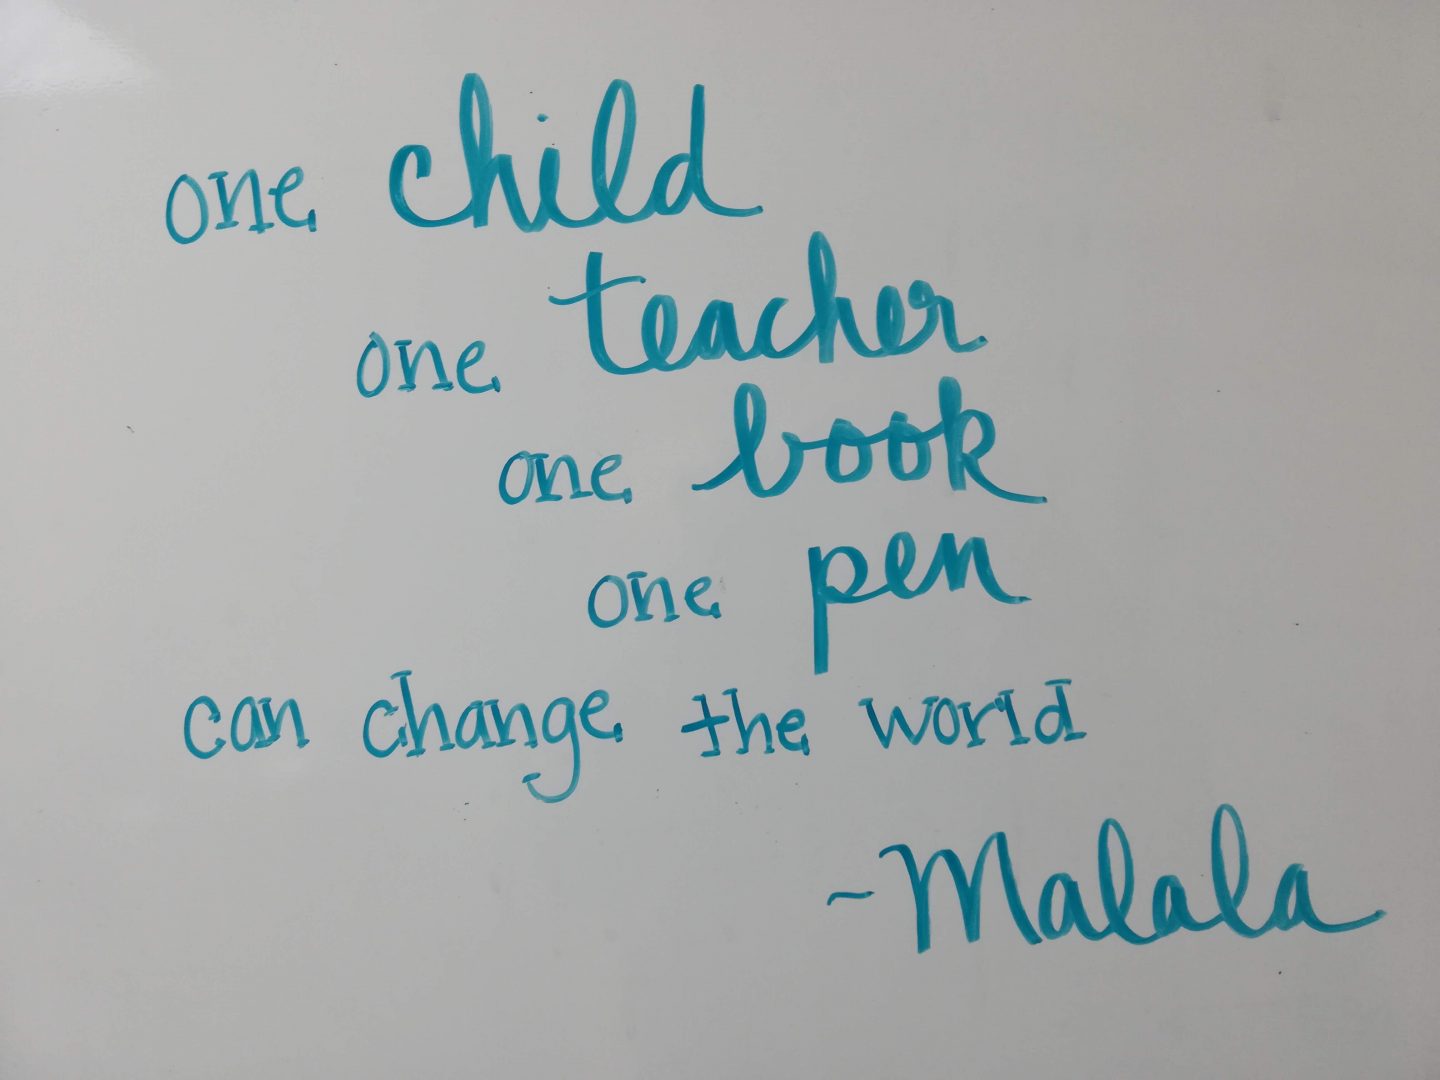 one child
one teacher
one book
one pen
can change the world
~Malala